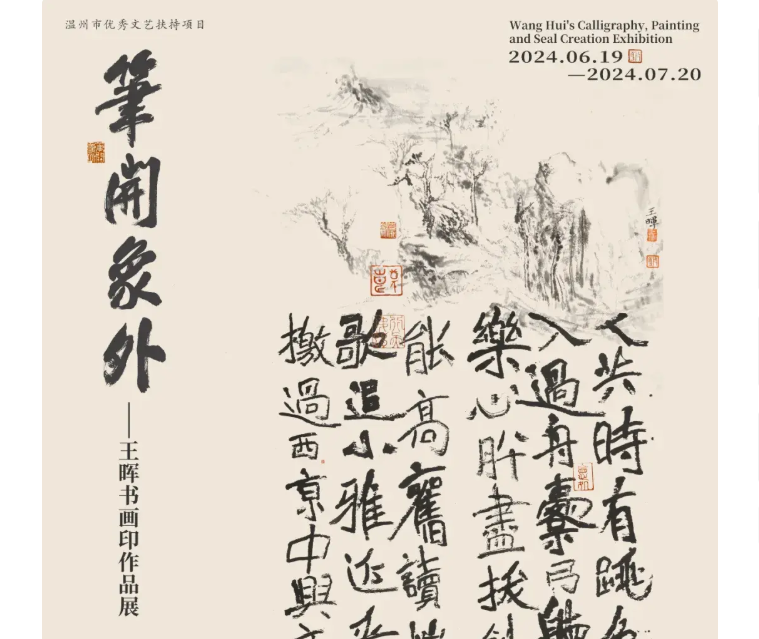 温州市优秀文艺扶持项目
Wang Hui's Calligraphy, Painting
and Seal Creation Exhibition
2024.06.19
—2024.07.20
筆開象外
——王晖书画印作品展
王暉
人共時有跳
入過舟橐弓
樂心肝盡拔
能高舊讀
歌追小雅近
撽過西京中興